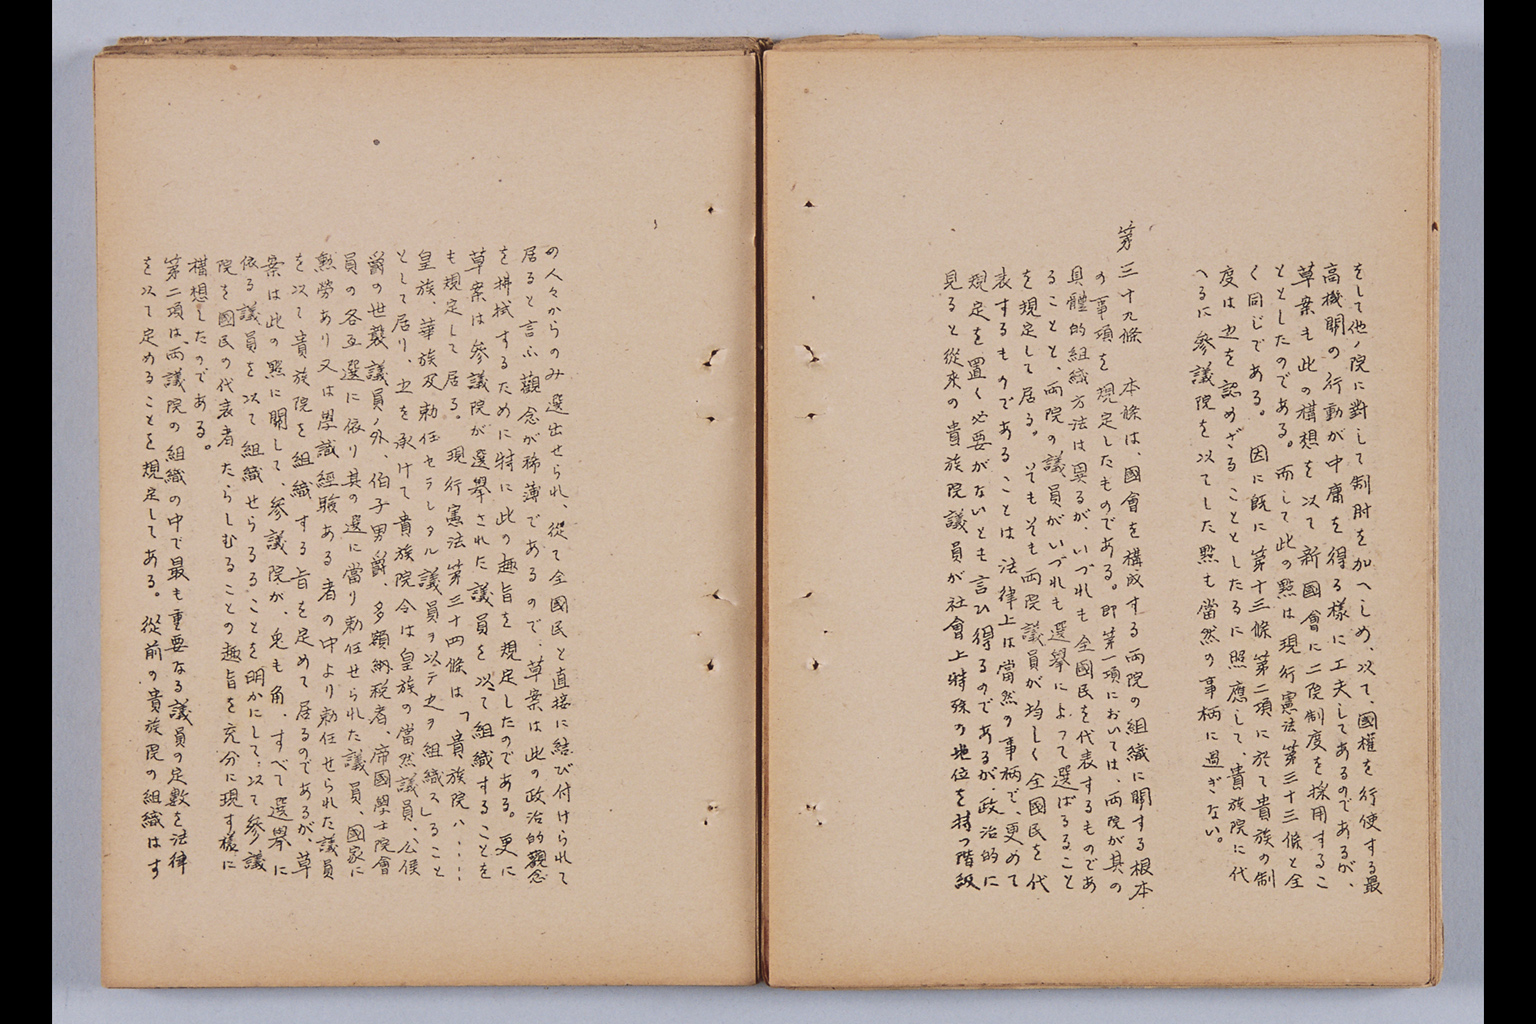 をして他ノ院に對して制肘を加へしめ、以て、國權を行使する最
高機關の行動が中庸を得る樣に工夫してあるのであるが、
草案も此の構想を以て新國會に二院制度を採用するこ
ととしたのである。而して此の點は現行憲法第三十三條と全
く同じである。因に既に第十三條第二項に於て貴族の制
度は之を認めざることとしたるに照應して、貴族院に代
へるに參議院を以てした點も當然の事柄に過ぎない。
第三十九條 本條は、國會を構成する両院の組織に關する根本
の事項を規定したものである。即第一項においては、両院が其の
具體的組織方法は異るが、いづれも全國民を代表するものであ
ること、両院の議員がいづれも選擧によって選ばるること
を規定して居る。そもそも両院議員が均しく全國民を代
表するものであることは法律上は當然の事柄で、更めて
規定を置く必要がないとも言ひ得るのであるが、政治的に
見ると從来の貴族院議員が社會上特殊の地位を持つ階級
の人々からのみ選出せられ、從て全國民と直接に結び付けられて
居ると言ふ觀念が稀薄であるので、草案は此の政治的觀念
を拂拭するために特に此の趣旨を規定したのである。更に
草案は參議院が選擧された議員を以て組織することを
も規定して居る。現行憲法第三十四條は「貴族院ハ・・・・・
皇族、華族及勅任セラレタル議員ヲ以テ之ヲ組織ス」ること
として居り、之を承けて貴族院令は皇族の當然議員、公侯
爵の世襲議員ノ外、伯子男爵、多額納税者、帝國學士院會
員の各互選に依り其の選に當り勅任せられた議員、國家に
勲勞あり又は學識經驗ある者の中より勅任せられた議員
を以て貴族院を組織する旨を定めて居るのであるが、草
案は此の點に關して、參議院が、兎も角、すべて選擧に
依る議員を以て組織せらるることを明かにして、以て參議
院を國民の代表者たらしむることの趣旨を充分に現す樣に
構想したのである。
第二項は、両議院の組織の中で最も重要なる議員の定數を法律
を以て定めることを規定してある。從前の貴族院の組織はす